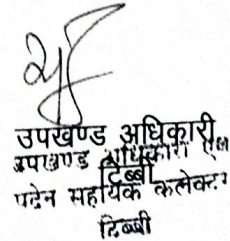 उपखण्ड अधिकारी
उपखण्ड अधिकारी एवं
टिब्बी
पदेन सहायक कलेक्टर
टिब्बी